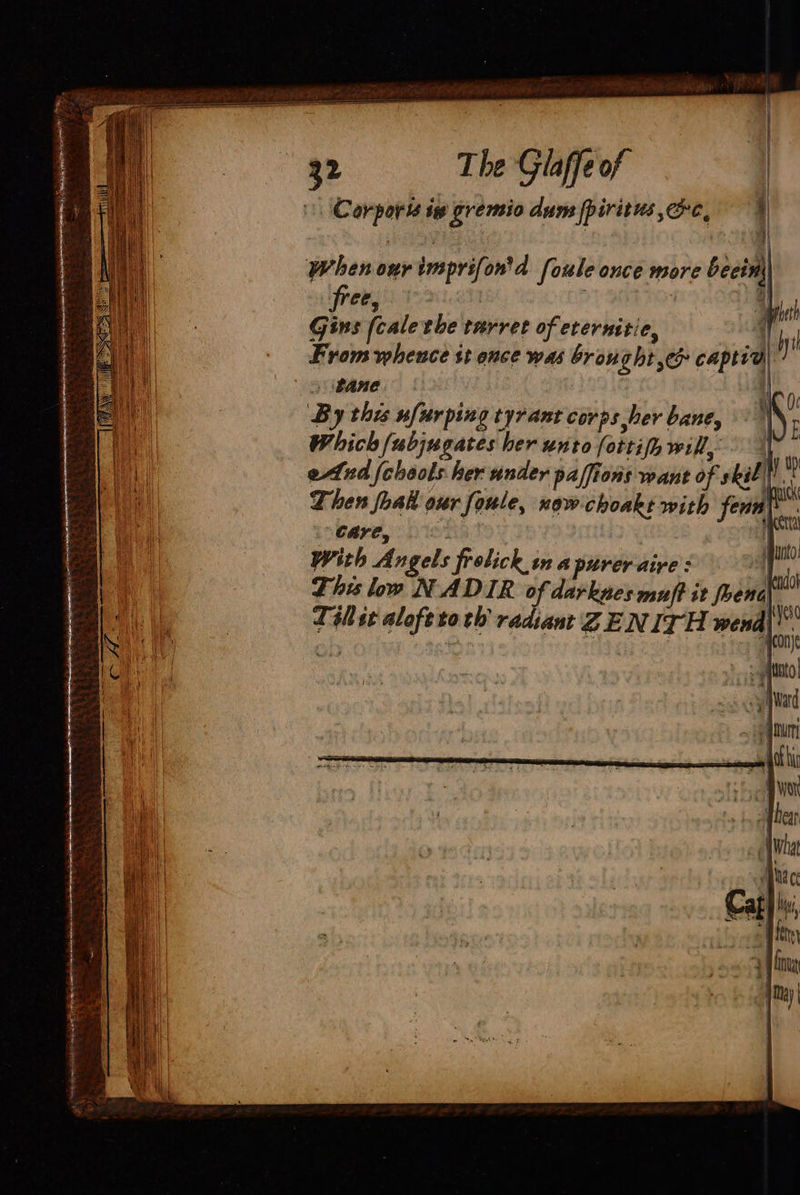 32 The Glaſſe of
Corporis in gremio dum ſpiritus, &c,
When our impriſon'd ſoule once more beein
free,
Gins ſcale the turret of eternitie,
From whence it once was brought, & captiv
tane
By this uſurping tyrant corps, her bane,
Which ſubjugates her unto ſottiſh will,
And ſchools her under paſſions want of skil
Then ſhall our ſoule, now choakt with fenn
care,
With Angels frolick in a purer aire:
This low NADIR of darknes muſt it ſhend
Till it aloft to th' radiant ZENITH wend
Cap